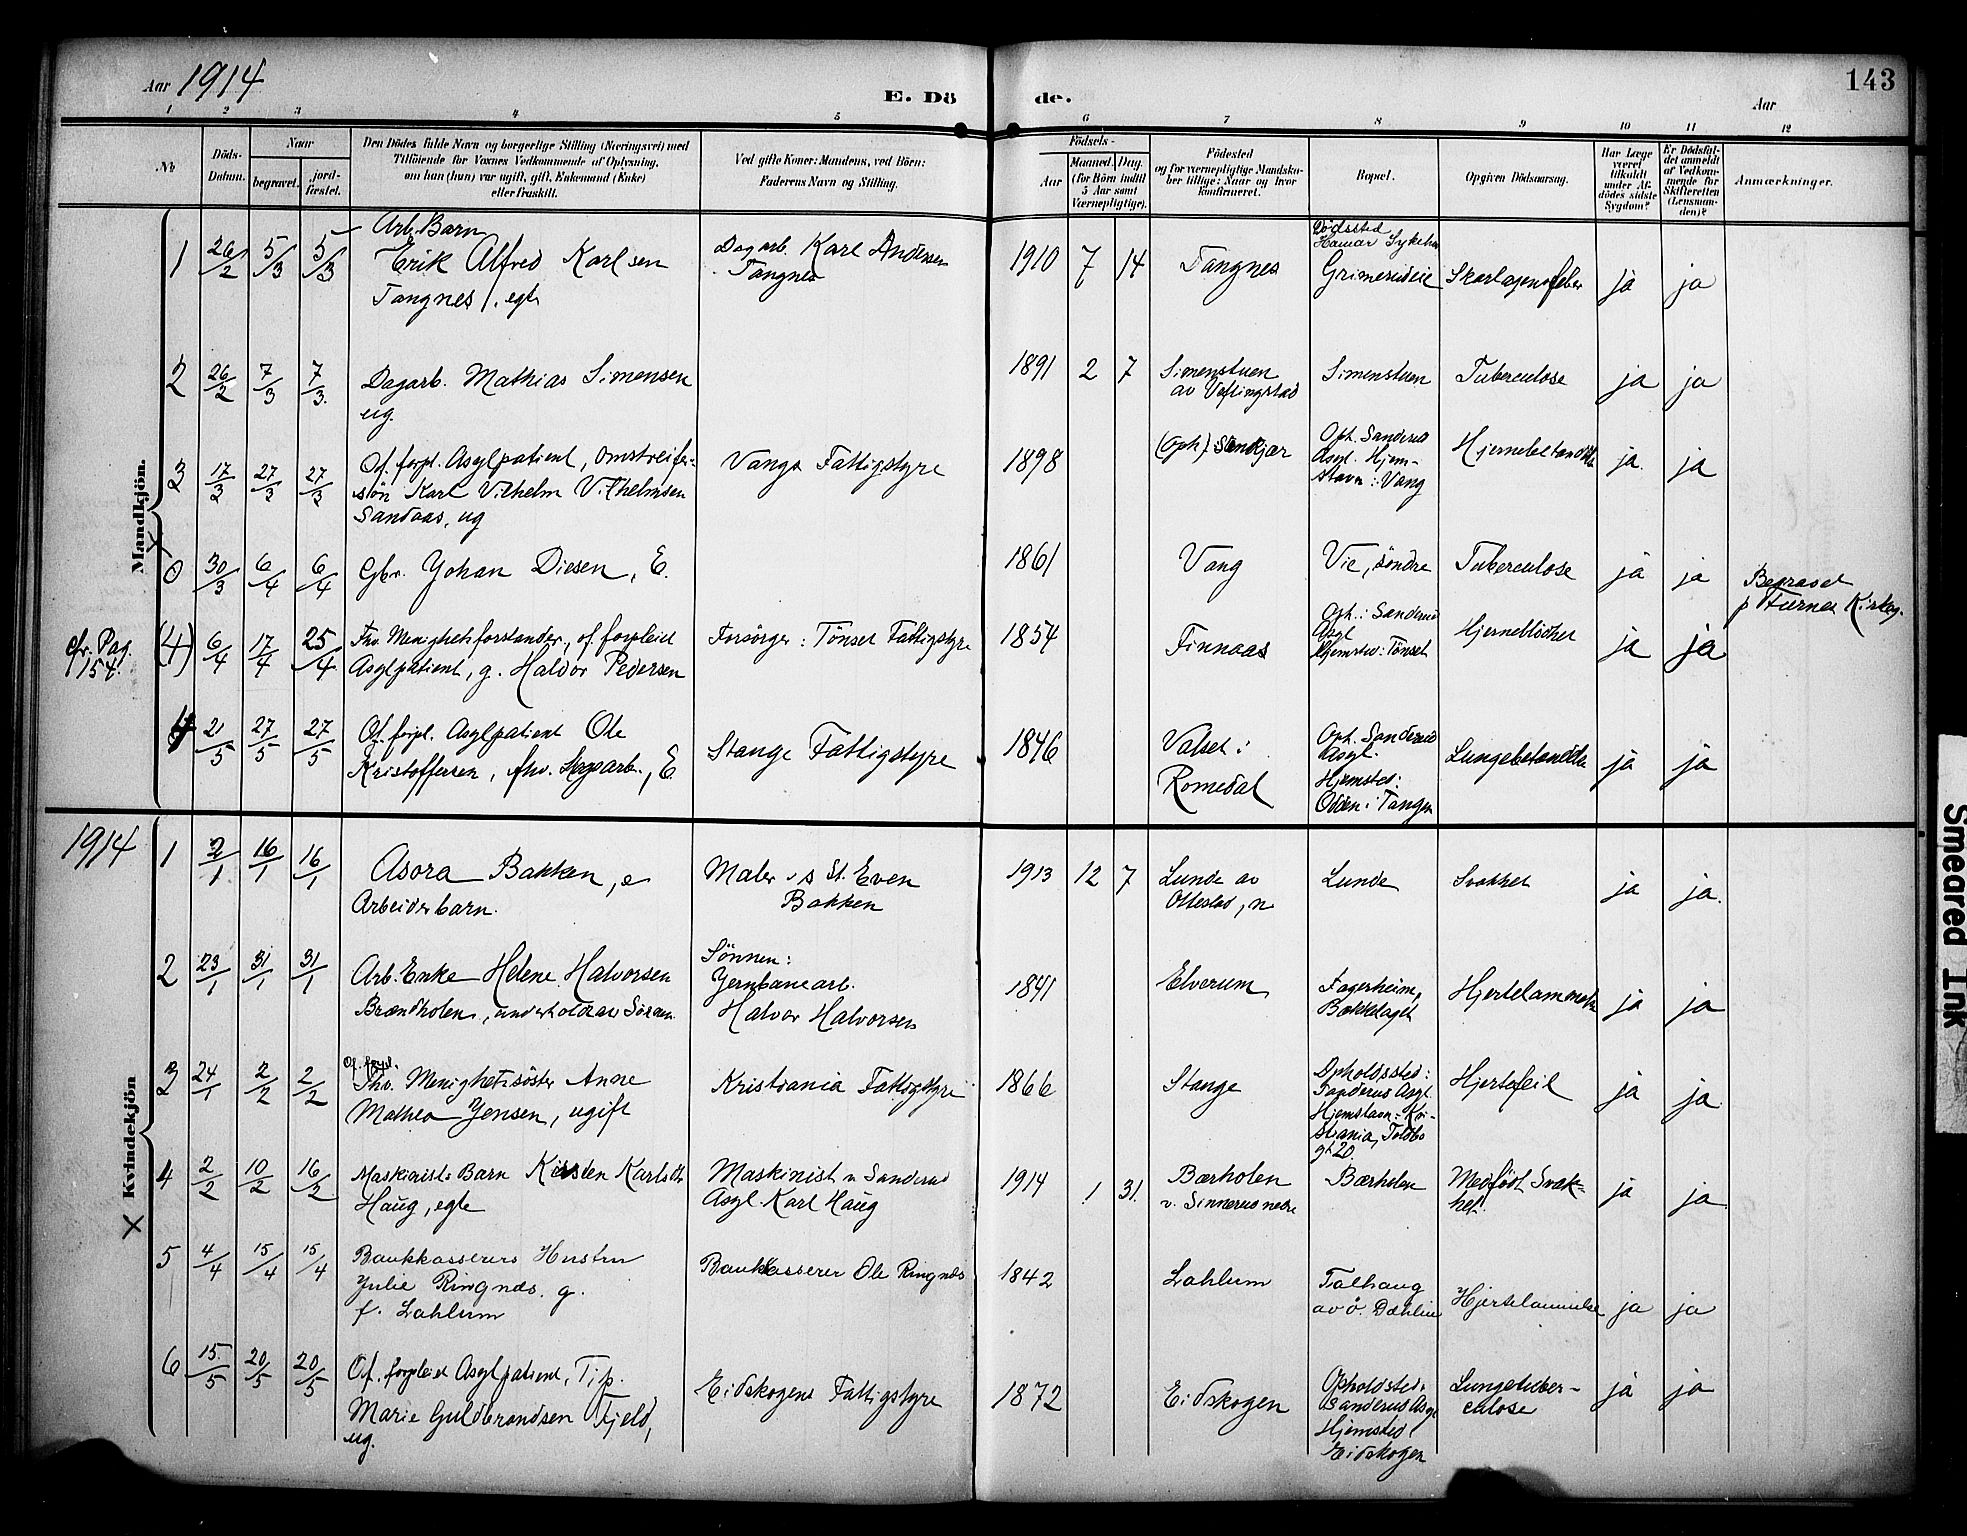 Aar 1914
E. Dö de.
Aar
143
1 2 3 4 5 6 7 8 9 10 11 12
No
Döds-
Datum.
Naar
begravet.
jord-
fæstet.
Den Dödes fulde Navn og borgerlige Stilling (Næringsvei) med
Tilföiende for Voxnes Vedkommende af Oplysning,
om han (hun) var ugift, gift, Enkemand (Enke)
eller fraskilt.
Ved gifte Koner: Mandens, ved Börn:
Faderens Navn og Stilling.
Födsels-
Aar
Maaned. Dag.
(for Börn indtil
5 Aar samt
Værnepligtige).
Födested
og for værnepligtige Mandsku-
ber tillige: Naar og hvor
konfirmeret.
Bopæl.
Opgiven Dödsaarsag.
Har Læge
været
tilkaldt
under Af-
dödes sidste
Sygdom?
Er Dödsfal-
det anmeldt
af Vedkom-
mende for
Skifteretten
(Lensman-
den)?
Anmærkninger.
Mandkjön.
Arb. Barn
1 26/2 5/3 5/3 Erik Alfred Karlsen
Tangnes, egte
Dagarb. Karl Andersen
Tangnes
1910 7 14 Tangnes
Dödssted
Hamar Sykehus
Grimerudeie
Skarlagensfeber ja ja
2 26/2 7/3 7/3 Dagarb. Mathias Simensen
ug.
1891 2 7 Simenstuen
av Veflingstad
Simenstuen Tuberculose ja ja
3 17/3 27/3 27/3 Of. forpl. Asylpatient, omstreifer-
sön Karl Vilhelm Vilhelmsen
Sandaas, ug
Vangs Fattigstyre
1898 (Oph)
Oph. Sanderud
Asyl. Hjem-
stavn: Vang
ja ja
0 30/3 6/4 6/4 Gbr. Johan Diesen, E.
1861 Vang Vie, söndre Tuberculose ja ja
Begravet
cfr. Pag.
154.
(4) 6/4 17/4 25/4 Fhv. Menighetsforstander, of. forpleiet
Asylpatient, g. Halvor Pedersen
Forsörger: Tönset Fattigstyre
1854 Finnaas
Oph.: Sanderud
Asyl
Hjemsted: Tönset
ja ja
4 21/5 27/5 27/5 Of. forpl. Asylpatient Ole
Kristoffersen, fhv. Dagarb., E
Stange Fattigstyre
1846 Valset i
Romedal
Oph. Sanderud
Asyl.
Hjemsted:
Odden i Tangen
ja ja
1914
Kvindekjön
1 2/1 16/1 16/1 Asora Bakken, e
Arbeiderbarn.
Maler Even
Bakken
1913 12 7 Lunde av
Ottestad, n
Lunde Svakhet ja ja.
2 23/1 31/1 31/1 Arb. Enke Helene Halvorsen
Brændholen, underholdt av Sönnen
Sönnen:
Jernbanearb.
Halvor Halvorsen
1841 Elverum
Fagerheim,
Bækkelaget
Hjertelammelse ja ja
Of. forpl.
3 24/1 2/2 2/2 Fhv. Menighetssöster Anne
Mathea Jensen, ugift
Kristiania Fattigstyre
1866 Stange
Opholdssted:
Sanderud Asyl.
Hjemstavn: Kri-
stiania, Toldbo
gt 20.
Hjertefeil ja ja
4 2/2 10/2 16/2 Maskinists Barn Kirsten Karlsdtr
Haug, egte
Maskinist v Sanderud
Asyl Karl Haug
1914 1 31. Bærholen
v. Sinnerud nedre
Bærholen
Medfödt Svak-
het.
ja ja
5 4/4 15/4 15/4 Bankkasserers Hustru
Julie Ringnæs. g.
f. Lahlum
Bankkasserer Ole Ringnæs
1842 Lahlum
Solhaug
av ö. Dæhlin
Hjertelammelse ja ja
6 15/5 20/5 20/5 Of. forpleiet Asylpatient, Tj.p.
Marie Guldbrandsen Fjeld,
ug.
Eidskogens Fattigstyre
1872 Eidskogen
Opholdsted:
Sanderud Asyl
Hjemsted
Eidskogen
Lungetuber-
culose
ja ja
Smeared Ink